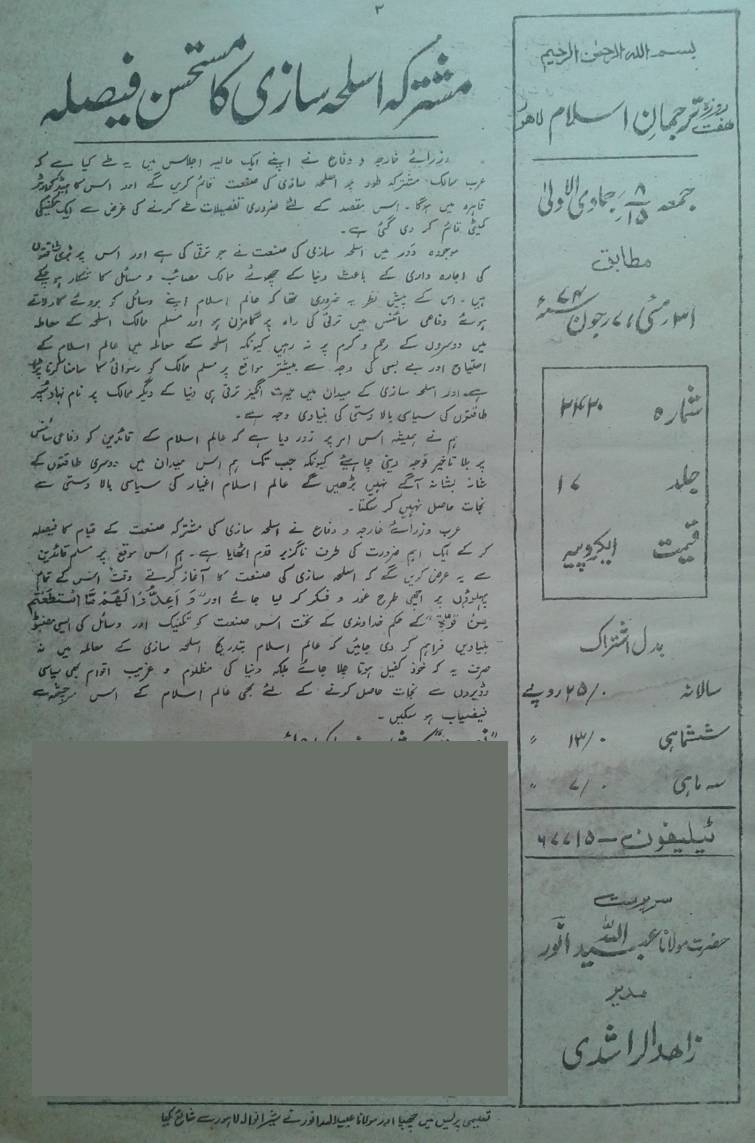 ۲
بسم الله الرحمٰن الرحیم
ہفت روزہ ترجمانِ اسلام لاہور
جمعہ ۸/۱۵ جمادی الاولیٰ
مطابق
۳۱ مئی / ۷ جون ۷۴ء
شمارہ
جلد ۱۷
قیمت ایک روپیہ
بدل اشتراک
سالانہ ۲۵/۰ روپے
ششماہی ۱۳/۰ "
سہ ماہی ۷/۰ "
ٹیلیفون — ۶۷۷۱۵
سرپرست
حضرت مولانا عبید اللہ انور
مدیر
زاھد الراشدی
مشترکہ اسلحہ سازی کا مستحسن فیصلہ
وزرائے خارجہ و دفاع نے اپنے ایک حالیہ اجلاس میں یہ طے کیا ہے کہ
عرب ممالک مشترکہ طور پر اسلحہ سازی کی صنعت قائم کریں گے اور اس کا ہیڈکوارٹر
قاہرہ میں ہوگا۔ اس مقصد کے لئے ضروری تفصیلات طے کرنے کی غرض سے ایک تکنیکی
کمیٹی قائم کر دی گئی ہے۔
موجودہ دور میں اسلحہ سازی کی صنعت نے جو ترقی کی ہے اور اس پر بڑی طاقتوں
کی اجارہ داری کے باعث دنیا کے چھوٹے ممالک مصائب و مسائل کا شکار ہو چکے
ہیں۔ اس کے پیش نظر یہ ضروری تھا کہ عالم اسلام اپنے وسائل کو بروئے کار لاتے
ہوئے دفاعی سائنس میں ترقی کی راہ پر گامزن ہو اور مسلم ممالک اسلحہ کے معاملہ
میں دوسروں کے رحم و کرم پر نہ رہیں کیونکہ اسلحہ کے معاملہ میں عالم اسلام کے
احتیاج اور بے بسی کی وجہ سے بیشتر مواقع پر مسلم ممالک کو رسوائی کا سامنا کرنا پڑا
ہے۔ اور اسلحہ سازی کے میدان میں حیرت انگیز ترقی ہی دنیا کے دیگر ممالک پر نام نہاد سپر
طاقتوں کی سیاسی بالا دستی کی بنیادی وجہ ہے۔
ہم نے ہمیشہ اس امر پر زور دیا ہے کہ عالم اسلام کے قائدین کو دفاعی سائنس
پر بلا تاخیر توجہ دینی چاہئے کیونکہ جب تک ہم اس میدان میں دوسری طاقتوں کے
شانہ بشانہ آگے نہیں بڑھیں گے عالم اسلام اغیار کی سیاسی بالا دستی سے
نجات حاصل نہیں کر سکتا۔
عرب وزرائے خارجہ و دفاع نے اسلحہ سازی کی مشترکہ صنعت کے قیام کا فیصلہ
کر کے ایک اہم ضرورت کی طرف ناگزیر قدم اٹھایا ہے۔ ہم اس موقع پر مسلم قائدین
سے یہ عرض کریں گے کہ اسلحہ سازی کی صنعت کا آغاز کرتے وقت اس کے تمام
پہلوؤں پر اچھی طرح غور و فکر کر لیا جائے اور "وَ اَعِدُّوْا لَهُمْ مَّا اسْتَطَعْتُمْ
مِّنْ قُوَّةٍ" کے حکم خداوندی کے تحت اس صنعت کو تکنیک اور وسائل کی ایسی مضبوط
بنیادیں فراہم کر دی جائیں کہ عالم اسلام بتدریج اسلحہ سازی کے معاملہ میں نہ
صرف یہ کہ خود کفیل ہوتا چلا جائے بلکہ دنیا کی مظلوم و غریب اقوام بھی سیاسی
وڈیروں سے نجات حاصل کرنے کے لئے بھی عالم اسلام کے اس سرچشمہ سے
فیضیاب ہو سکیں۔
تعلیمی پریس میں چھپا اور مولانا عبید اللہ انور نے شیرانوالہ لاہور سے شائع کیا